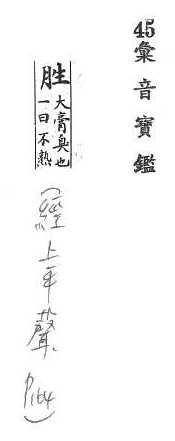 45彙音寶鑑
胜
大膏臭也
一曰不熟
(經上平聲 P164)